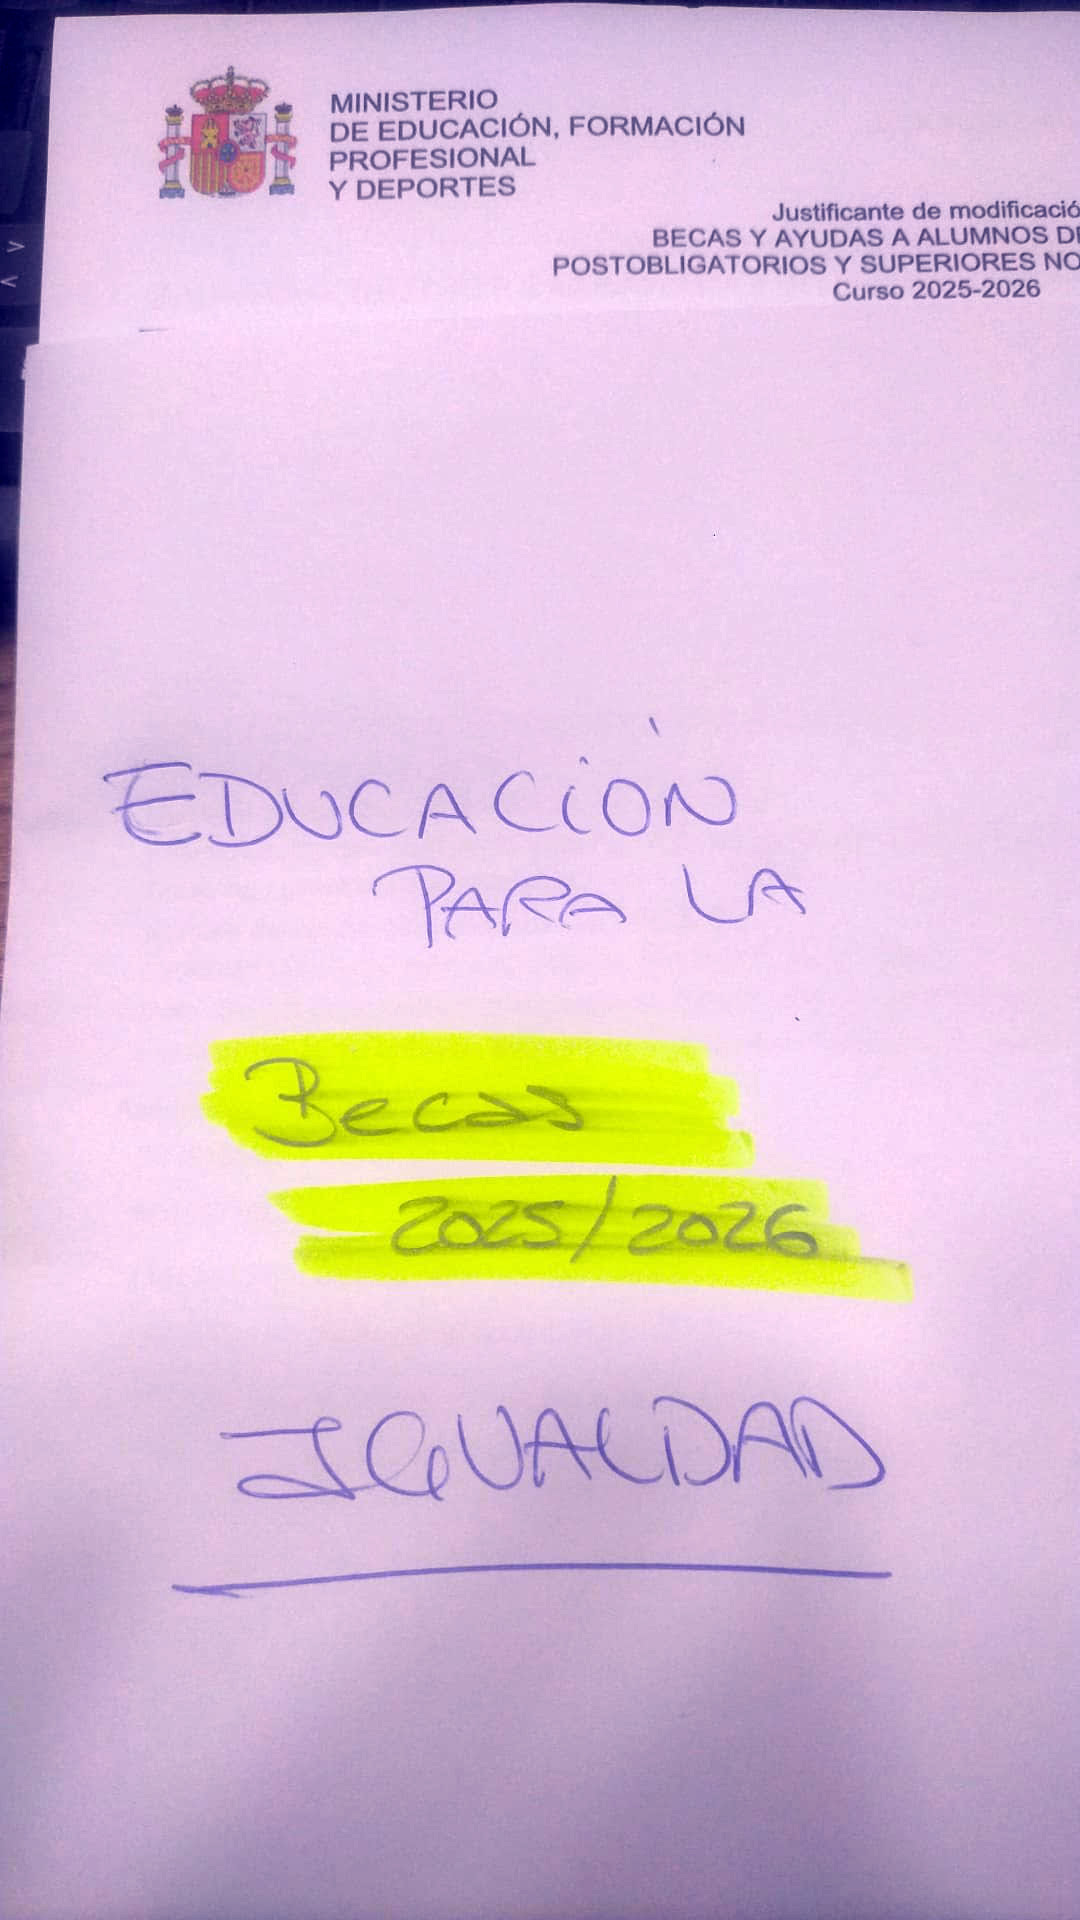 MINISTERIO
DE EDUCACIÓN, FORMACIÓN
PROFESIONAL
Y DEPORTES
Justificante de modificació
BECAS Y AYUDAS A ALUMNOS DE
POSTOBLIGATORIOS Y SUPERIORES NO
Curso 2025-2026
EDUCACIÓN
PARA LA
Becas
2025/2026
IGUALDAD